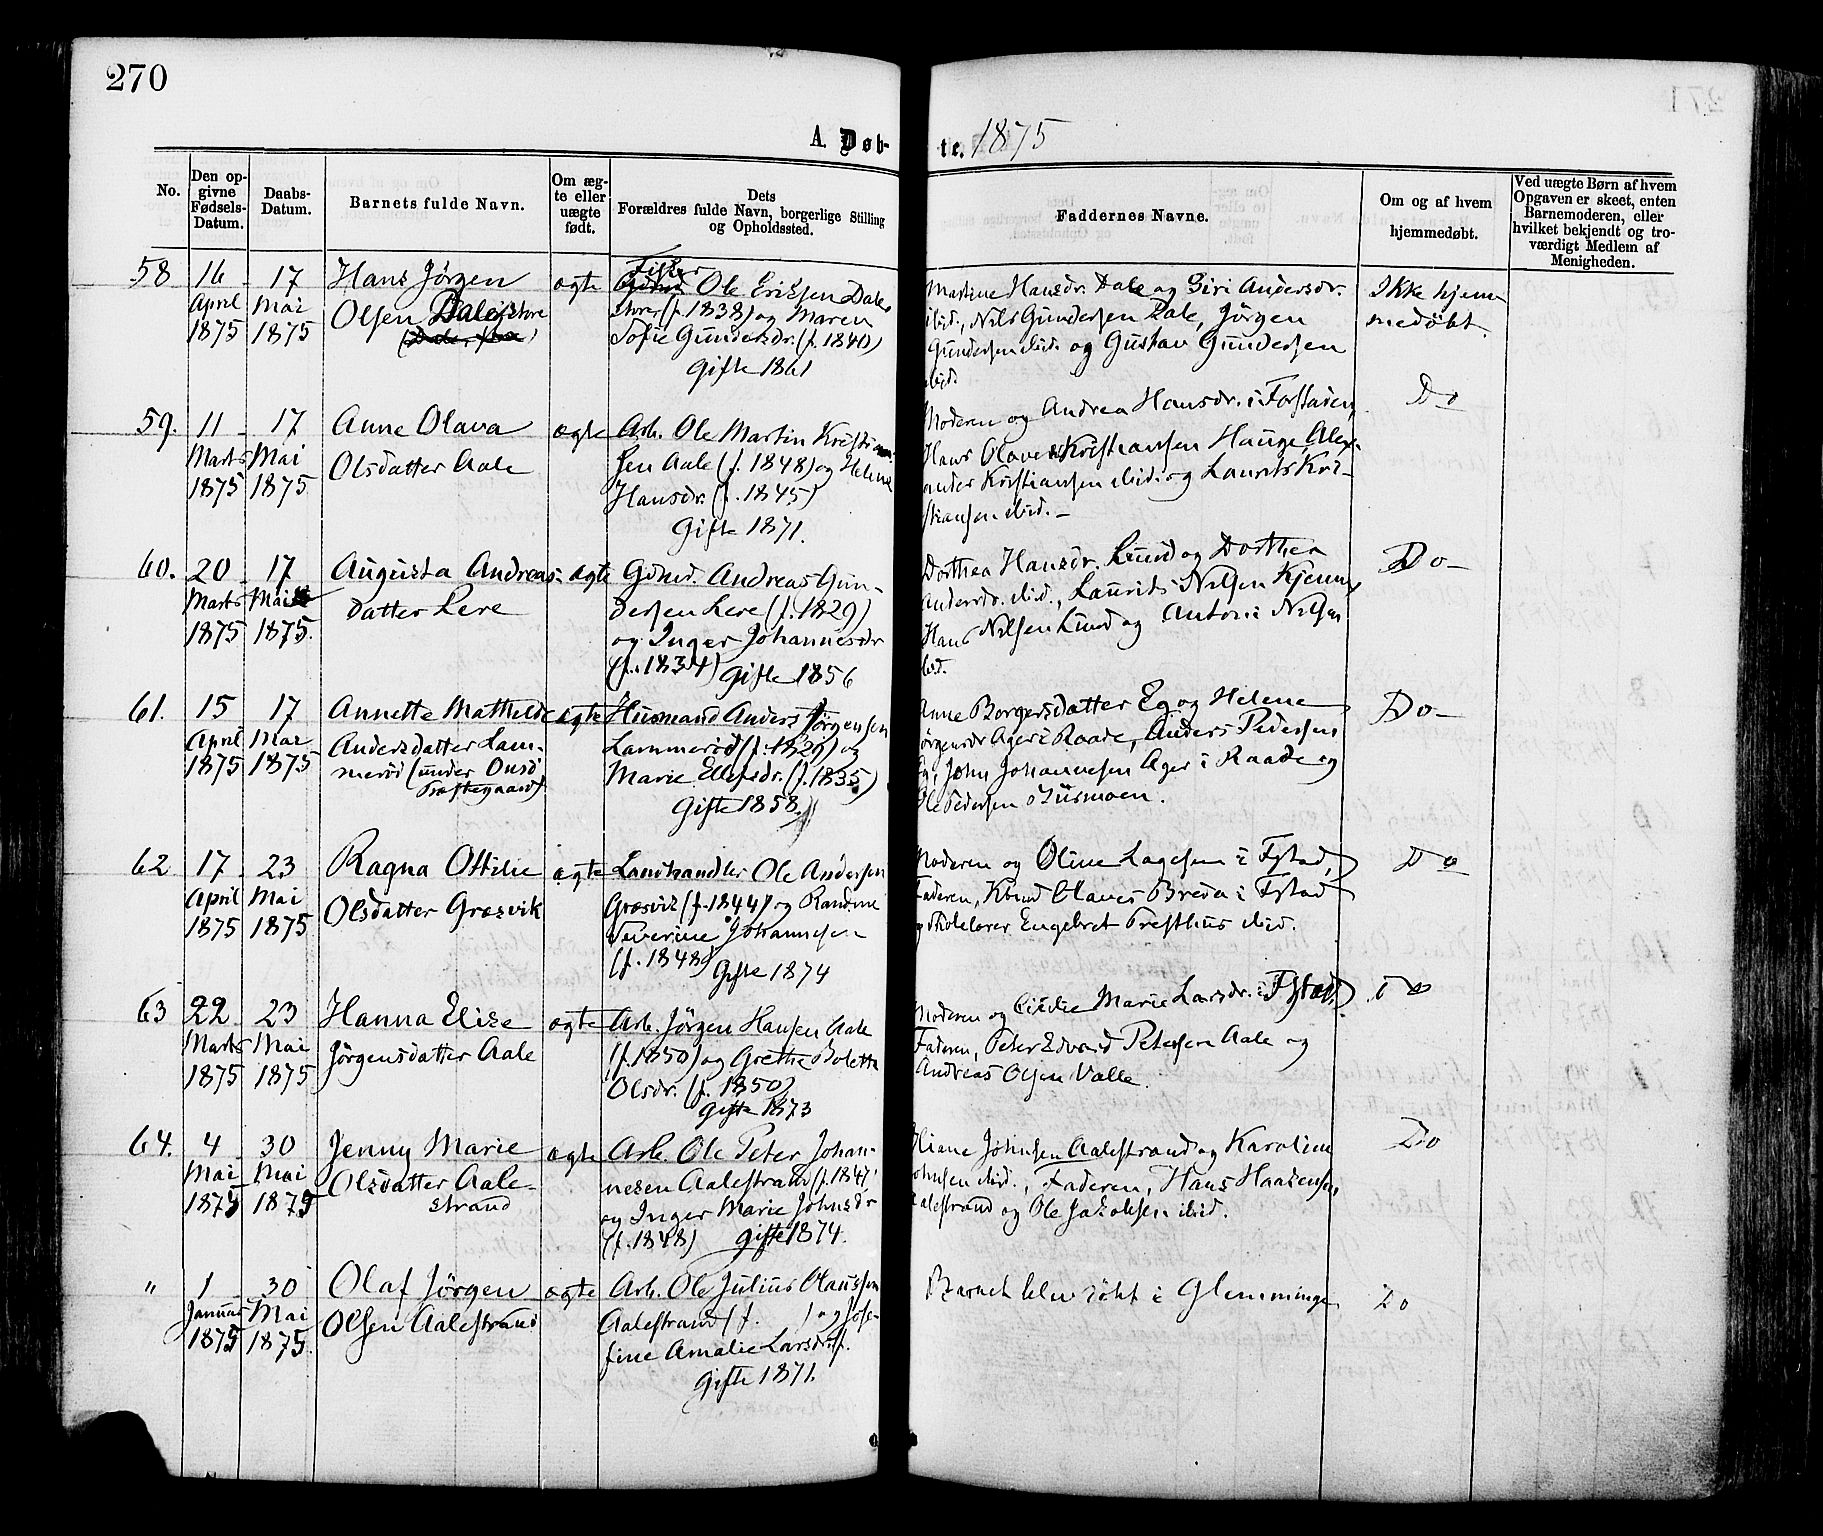 270
A. Døb-
te. 1875
No.
Den op-
givne
Fødsels-
Datum.
Daabs-
Datum.
Barnets fulde Navn.
Om æg-
te eller
uægte
født.
Dets
Forældres fulde Navn, borgerlige Stilling
og Opholdssted.
Faddernes Navne.
Om og af hvem
hjemmedøbt.
Ved uægte Børn af hvem
Opgaven er skeet, enten
Barnemoderen, eller
hvilket bekjendt og tro-
værdigt Medlem af
Menigheden.
58
16
April
1875
17
Mai
1875
Hans Jørgen
Olsen Dale store
ægte
Fisker
Ole Eriksen Dale
store (f. 1838) og Maren
Sofie Gundersdr. (f. 1840)
Gifte 1861
Martine Hansdr. Dale og Siri Andersdr.
ibid., Nils Gundersen Dale, Jørgen
Gundersen ibid. og Gustav Gundersen
ibid.
Ikke hjem-
medøbt.
59.
11
Marts
1875
17
Mai
1875
Anne Olava
Olsdatter Aale
ægte
Arb. Ole Martin Kristian-
sen Aale (f. 1848) og Helene
Hansdr. (f. 1845)
Gifte 1871.
Moderen og Andrea Hansdr. i Forstaden,
Hans Olaves Kristiansen Hauge, Alex-
ander Kristiansen ibid. og Laurits Kri-
stiansen ibid. –
Do
60.
20
Marts
1875
17
Mai
1875.
Augusta Andreas-
datter Lere
ægte
Gdmd. Andreas Gun-
dersen Lere (f. 1829)
og Inger Johannesdr
(f. 1834) Gifte 1856
Dorthea Hansdr. Lund og Dorthea
Andersdr. ibid., Laurits Nilsen Kjenne,
Hans Nilsen Lund og Anton Nilsen
ibid.
Do –
61.
15
April
1875
17
Mai
1875
Annette Mathilde
Andersdatter Lam-
merød (under Onsø
Præstegaard)
ægte
Husmand Anders Jørgensen
Lammerød (f. 1829) og
Marie Ellefsdr. (f. 1835)
Gifte 1858.
Anne Borgersdatter Eg og Helene
Jørgensdr Ager i Raade, Anders Pedersen
Eg, John Johannesen Ager i Raade og
Ole Pedersen Husmoen.
Do –
62
17
April
1875
23
Mai
1875
Ragna Ottilie
Olsdatter Græsvik
ægte
Landhandler Ole Andersen
Græsvik (f. 1844) og Randine
Severine Johannesen
(f. 1848) Gifte 1874
Moderen og Oline Lagesen i Fstad,
Faderen, Knud Olaves Breda i Fstad
og Skolelærer Engebret Presthus ibid.
Do
63
22
Marts
1875
23
Mai
1875
Hanna Elise
Jørgensdatter Aale
ægte
Arb. Jørgen Hansen Aale
(f. 1850) og Grethe Bolette
Olsdr. (f. 1850)
Gifte 1873
Moderen og Marie Larsdr. i Fstad,
Faderen, Peter Edvard Petersen Aale og
Andreas Olsen Valle.
Do
64.
4
Mai
1875
30
Mai
1875
Jenny Marie
Olsdatter Aale-
strand
ægte
Arb. Ole Peter Johan-
nesen Aalestrand (f. 1847)
og Inger Marie Johnsdr
(f. 1848) Gifte 1874.
Oliane Johnsen Aalestrand og Karoline
Johnsen ibid., Faderen, Hans Haagensen
Aalestrand og Ole Jakobsen ibid.
Do
"
1
Januar
1875
30
Mai
1875.
Olaf Jørgen
Olsen Aalestrand
ægte
Arb. Ole Julius Olaussen
Aalestrand (f. ) og Jose-
fine Amalie Larsdr. (f.
Gifte 1871.
Barnet blev døbt i Glemminge
Do